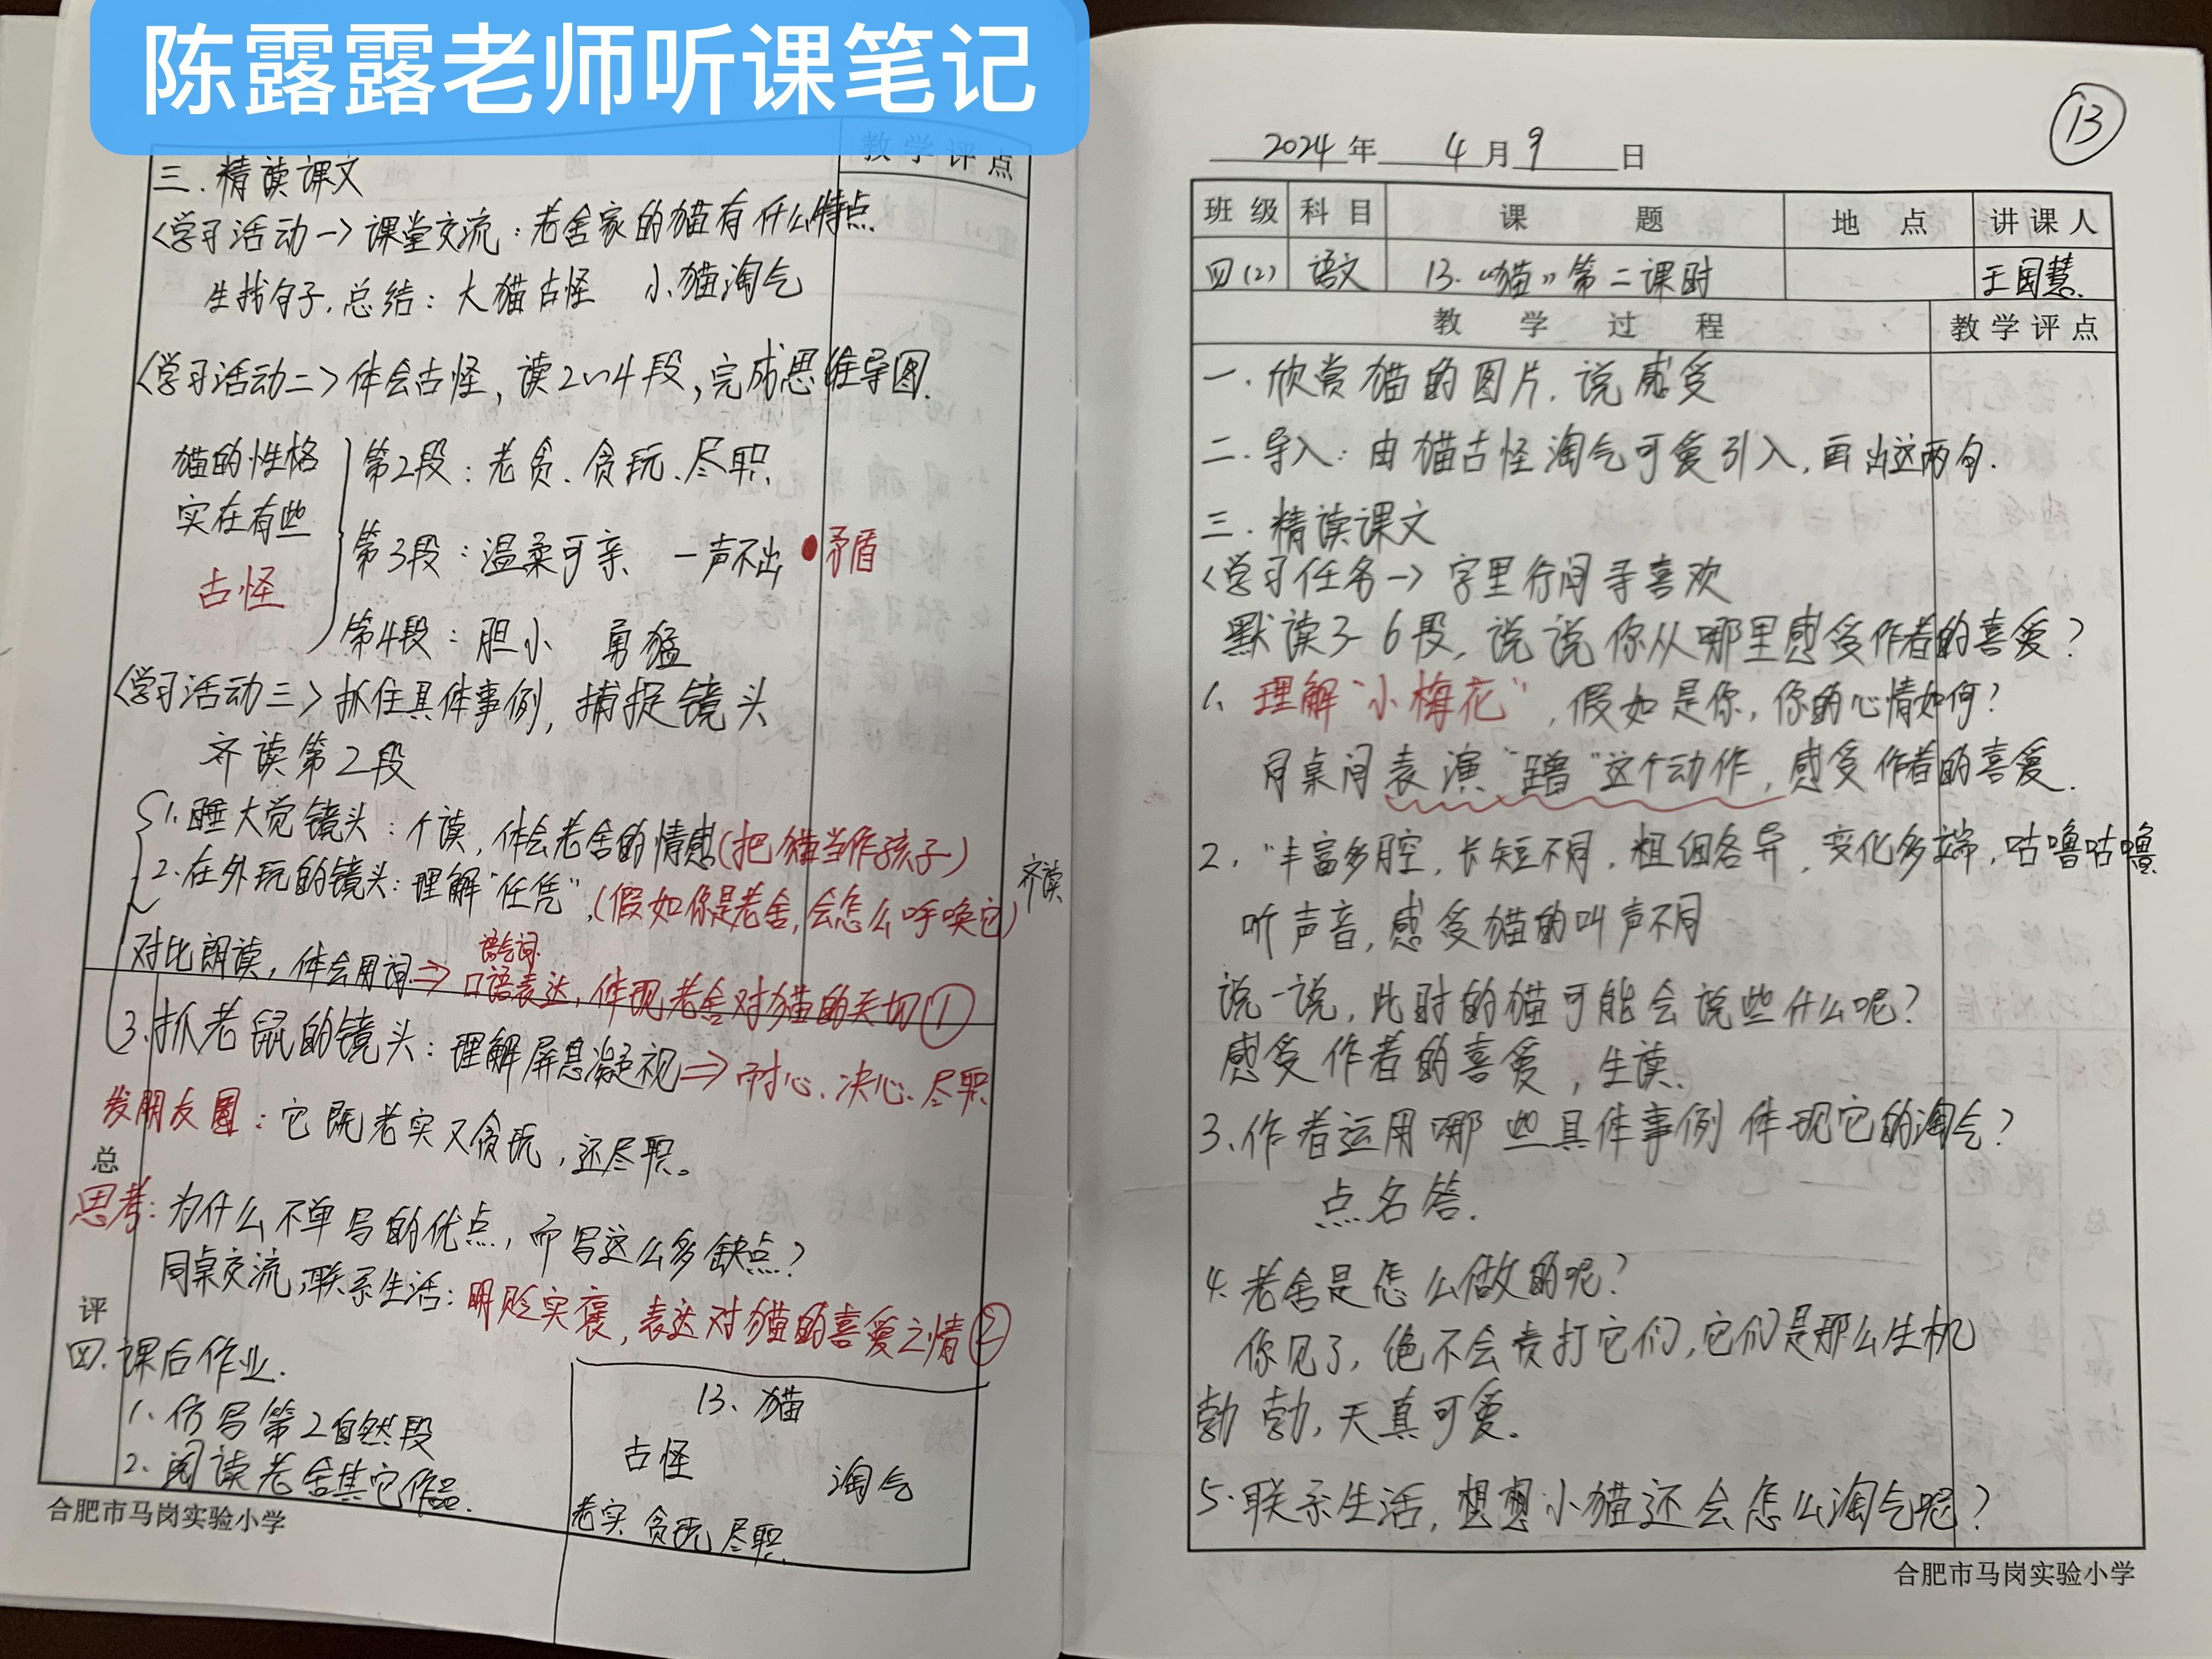 陈露露老师听课笔记
教学评点
三.精读课文
<学习活动一>课堂交流:老舍家的猫有什么特点
生找句子,总结:大猫古怪 小猫淘气
<学习活动二>体会古怪,读2~4段,完成思维导图.
猫的性格
实在有些
古怪
第2段:老贪、贪玩、尽职
第3段:温柔可亲、一声不出 矛盾
第4段:胆小 勇猛
<学习活动三>抓住具体事例,捕捉镜头
齐读第2段
1.睡大觉镜头:个读,体会老舍的情感(把猫当作孩子)
2.在外玩的镜头:理解"任凭",(假如你是老舍,会怎么呼唤它)
齐读
语气词
对比朗读,体会用词⇒口语表达,体现老舍对猫的关切①
3.抓老鼠的镜头:理解屏息凝视⇒耐心、决心、尽职
发朋友圈:它既老实又贪玩,还尽职。
总
思考:为什么不单写的优点,而写这么多缺点?
同桌交流,联系生活:明贬实褒,表达对猫的喜爱之情②
评
四.课后作业.
1.仿写第2自然段
2.阅读老舍其它作品.
13、猫
古怪 淘气
老实 贪玩 尽职
合肥市马岗实验小学
13
2024年4月9日
班级 科目 课题 地点 讲课人
四(2) 语文 13.《猫》第二课时 王国慧
教学过程 教学评点
一.欣赏猫的图片.说感受
二.导入:由猫古怪淘气可爱引入,画出这两句.
三.精读课文
<学习任务一>字里行间寻喜欢
默读3-6段,说说你从哪里感受作者的喜爱?
1、理解"小梅花",假如是你,你的心情如何?
同桌间表演"蹭"这个动作,感受作者的喜爱.
2."丰富多腔,长短不同,粗细各异,变化多端,咕噜咕噜
听声音,感受猫的叫声不同
说一说,此时的猫可能会说些什么呢?
感受作者的喜爱,生读.
3.作者运用哪些具体事例体现它的淘气?
点名答.
4.老舍是怎么做的呢?
你见了,绝不会责打它们,它们是那么生机
勃勃,天真可爱。
5.联系生活,想想小猫还会怎么淘气呢?
合肥市马岗实验小学